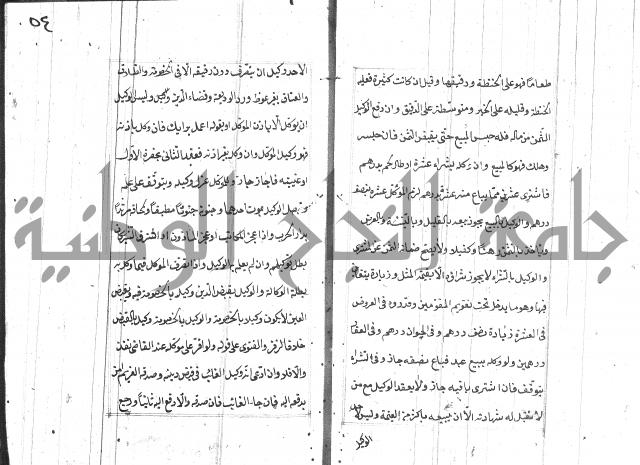 طعاما فهو على الحنطة ودقيقها وقيل ان كانت كثيرة فعلى
الحنطة وقليلة على الخبز ومتوسطة على الدقيق وان دفع الوكيل
الثمن من ماله فله حبس المبيع حتى يقبض الثمن فان حبسه
وهلك فهو كالمبيع وان وكله بشراء عشرة ارطال لحم بدرهم
فاشترى عشرين مما يباع منه عشرة بدرهم لزم الموكل عشرة بنصف
درهم والوكيل بالبيع يجوز بيعه بالقليل وبالنسيئة وبالعرض
وياخذ بالثمن رهنا وكفيلا ولا يصح ضمانه الثمن عن المشتري
والوكيل بالشراء لا يجوز شراؤه الا بقيمة المثل وزيادة يتغابن
فيها وهو ما يدخل تحت تقويم المقومين وقدروه في العروض
في العشرة زيادة نصف درهم وفي الحيوان درهم وفي العقار
درهمين ولو وكله ببيع عبد فباع نصفه جاز وفي الشراء
يتوقف فان اشترى باقيه جاز ولا يعقد الوكيل مع من
لا تقبل له شهادته الا ان يبيعه باكثر من القيمة وليس
٥٤
لاحد وكيلين ان يتصرف دون رفيقه الا في الخصومة والطلاق
والعتاق بغير عوض ورد الوديعة وقضاء الدين وليس للوكيل
ان يوكل الا باذن الموكل او بقوله اعمل برايك فان وكل باذنه
فهو وكيل الموكل وان وكل بغير اذنه فعقد الثاني بحضرة الاول
او غيبته فاجاز جاز وللموكل عزل وكيله ويتوقف على علمه
وتبطل الوكيل بموت احدهما وجنونه جنونا مطبقا ولحاقه مرتدا
بدار الحرب واذا عجز المكاتب او حجر الماذون او افترق الشريكان
بطل توكيلهم وان لم يعلم به الوكيل واذا تصرف الموكل فيما وكل به
بطلت الوكالة والوكيل بقبض الدين وكيل بالخصومة فيه وبقبض
العين لا يكون وكيلا بالخصومة والوكيل بالخصومة وكيل بالقبض
خلافا لزفر والفتوى على قوله ولو اقر على موكله عند القاضي نفذ
والا فلا وان ادعى انه وكيل الغائب في قبض دينه وصدقه الغريم امر
بدفعه اليه فان جاء الغائب فان صدقه والا دفع اليه ثانيا ورجع
جامعة النجاح الوطنية